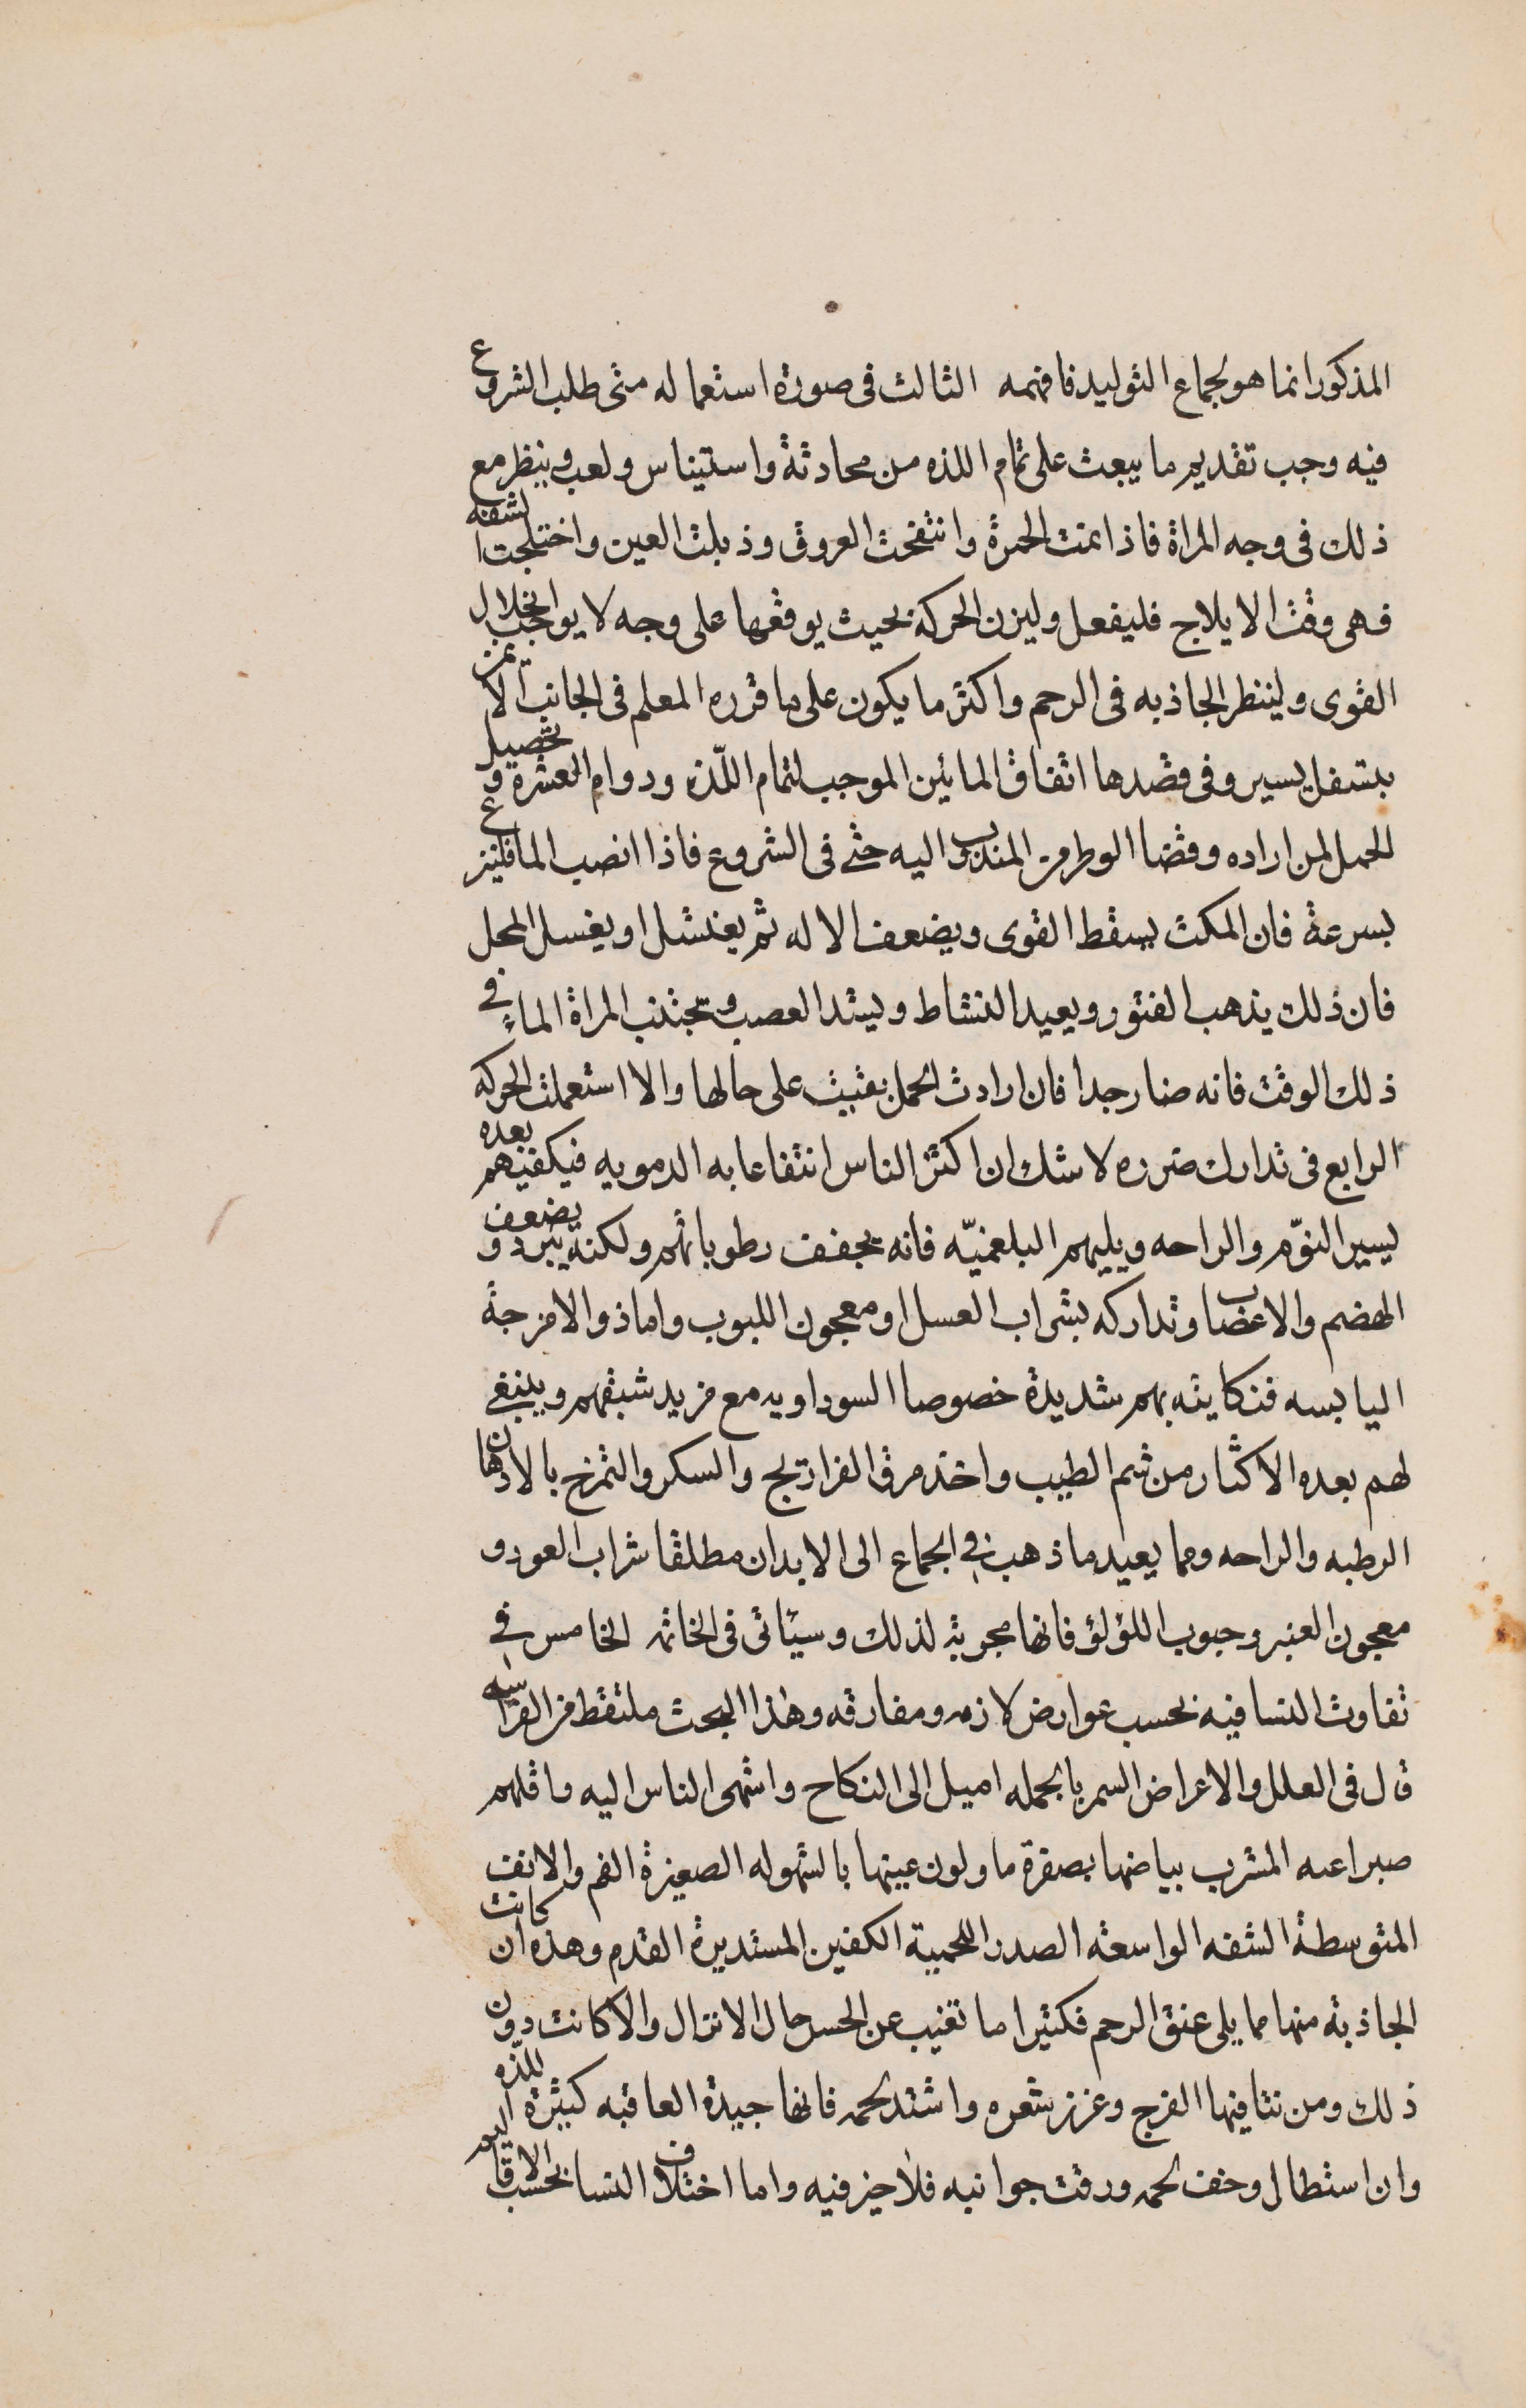 المذكور انما هو لجماع التوليد فافهمه الثالث فى صورة استعماله متى طلب الشروع
فيه وجب تقديم ما يبعث على تمام اللذه من محادثة واستيناس ولعب وينظر مع
ذلك فى وجه المراة فاذا عمت الحمرة وانتفخت العروق وذبلت العين واختلجت الشفه
فهى وقت الايلاج فليفعل وليزن الحركة بحيث يوقعها على وجه لا يوجب انحلال
القوى ولينظر الجاذبه فى الرحم واكثر ما يكون على ما قرره المعلم فى الجانب الايمن
بتسفل يسير وفى قصدها اتفاق المائين الموجب لتمام اللّذه ودوام العشرة وتحصيل
الحمل لمن اراده وقضا الوطر من المندوب اليه حتى فى الشروع فاذا انصب الما فلينزع
بسرعة فان المكث يسقط القوى ويضعف الاله ثم يغتسل او يغسل المحل
فان ذلك يذهب الفتور ويعيد النشاط ويشد العصب وتجتنب المراة الماء فى
ذلك الوقت فانه ضار جدا فان ارادت الحمل بقيت على حالها والا استعملت الحركه
الرابع فى تدارك ضرره لا شك ان اكثر الناس انتفاعا به الدمويه فيكفيهم بعده
يسير النوّم والراحه ويليهم البلغميّه فانه يجفف رطوباتهم ولكنه يبرد ويضعف
الهضم والاعصاب وتداركه بشراب العسل او معجون اللبوب واما ذوا الامزجة
اليابسه فنكايته بهم شديدة خصوصا السوداويه مع مزيد شبقهم وينبغى
لهم بعده الاكثار من شم الطيب واخذ مرق الفراريج والسكر والتمرخ بالادهان
الرطبه والراحه ومما يعيد ما ذهب فى الجماع الى الابدان مطلقا شراب العود و
معجون العنبر وحبوب اللؤلؤ فانها مجربة لذلك وسيأتى فى الخاتمه الخامس فى
تفاوت النسا فيه بحسب عوارض لازمه ومفارقه وهذا البحث ملتقط من الفراسه
قال فى العلل والاعراض السمر بالجمله اميل الى النكاح واشهى الناس اليه واقلهم
صبرا عنه المشرب بياضها بصفرة ما ولون عينها بالشهوله الصغيرة الفم والانف
المتوسطة الشفه الواسعة الصدر اللحمية الكفين المستديرة القدم وهذه ان كانت
الجاذبة منها مما يلى عنق الرحم فكثيرا ما تغيب عن الحس حال الانزال والا كانت دون
ذلك ومن نتا فيها الفرج وغزر شعره واشتد لحمه فانها جيدة العاقبه كثيرة اللذه
وان استطال وخف لحمه ورقت جوانبه فلا خير فيه واما اختلاف النسا بحسب الاقاليم